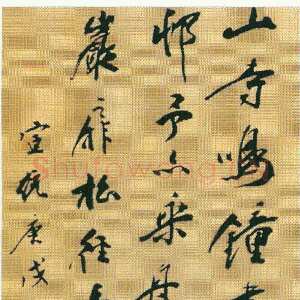 山寺鳴鐘
邨予亦乘舟
巖扉松徑
宣統庚戌